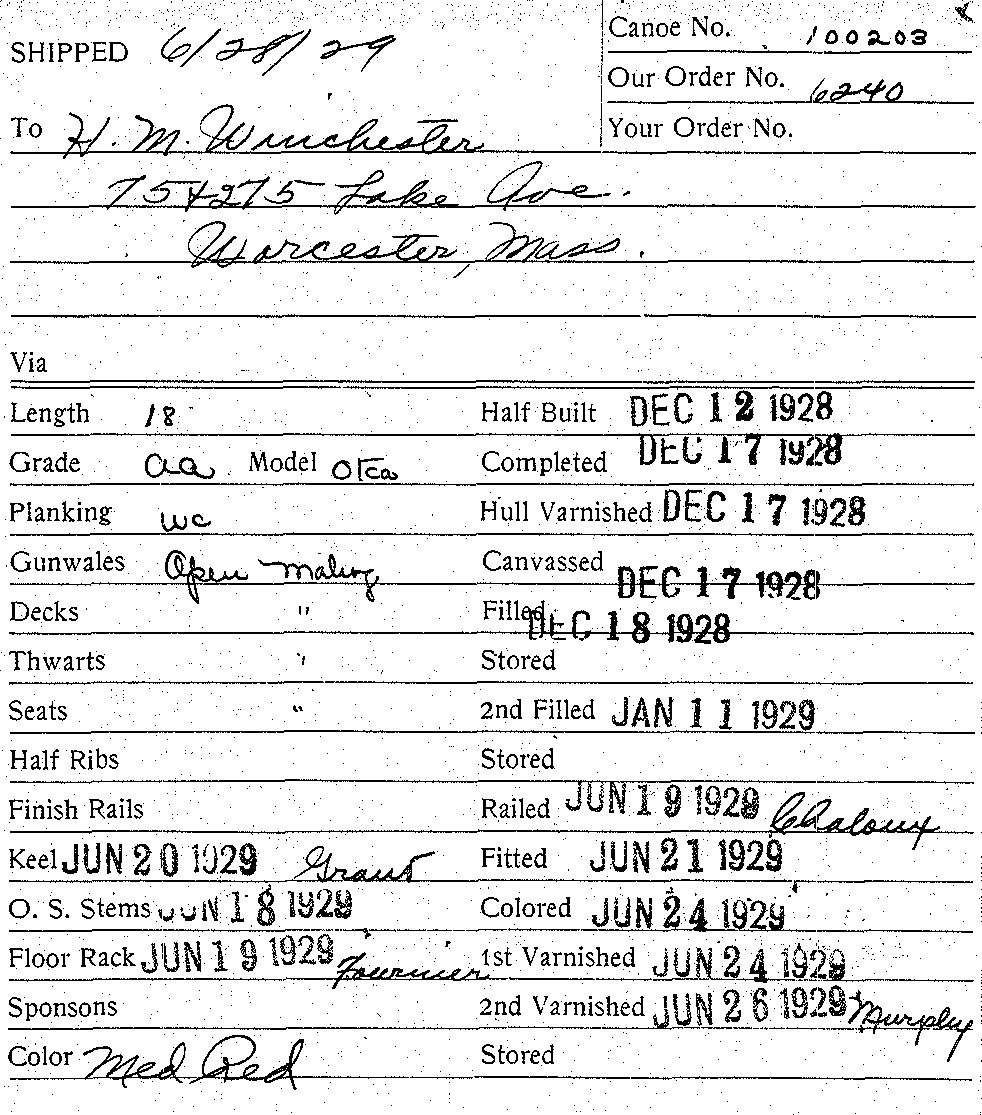 SHIPPED 6/28/29
Canoe No. 100203
Our Order No. 6240
To H. M. Winchester
Your Order No.
75+275 Lake Ave.
Worcester, Mass.
Via
Length 18 Half Built DEC 12 1928
Grade aa Model Otca Completed DEC 17 1928
Planking wc Hull Varnished DEC 17 1928
Gunwales Open Mahog Canvassed DEC 17 1928
Decks " Filled DEC 18 1928
Thwarts " Stored
Seats " 2nd Filled JAN 11 1929
Half Ribs Stored
Finish Rails Railed JUN 19 1929 Chaloux
Keel JUN 20 1929 Grant Fitted JUN 21 1929
O. S. Stems JUN 18 1929 Colored JUN 24 1929
Floor Rack JUN 19 1929 Fournier 1st Varnished JUN 24 1929
Sponsons 2nd Varnished JUN 26 1929 Murphy
Color Med Red Stored